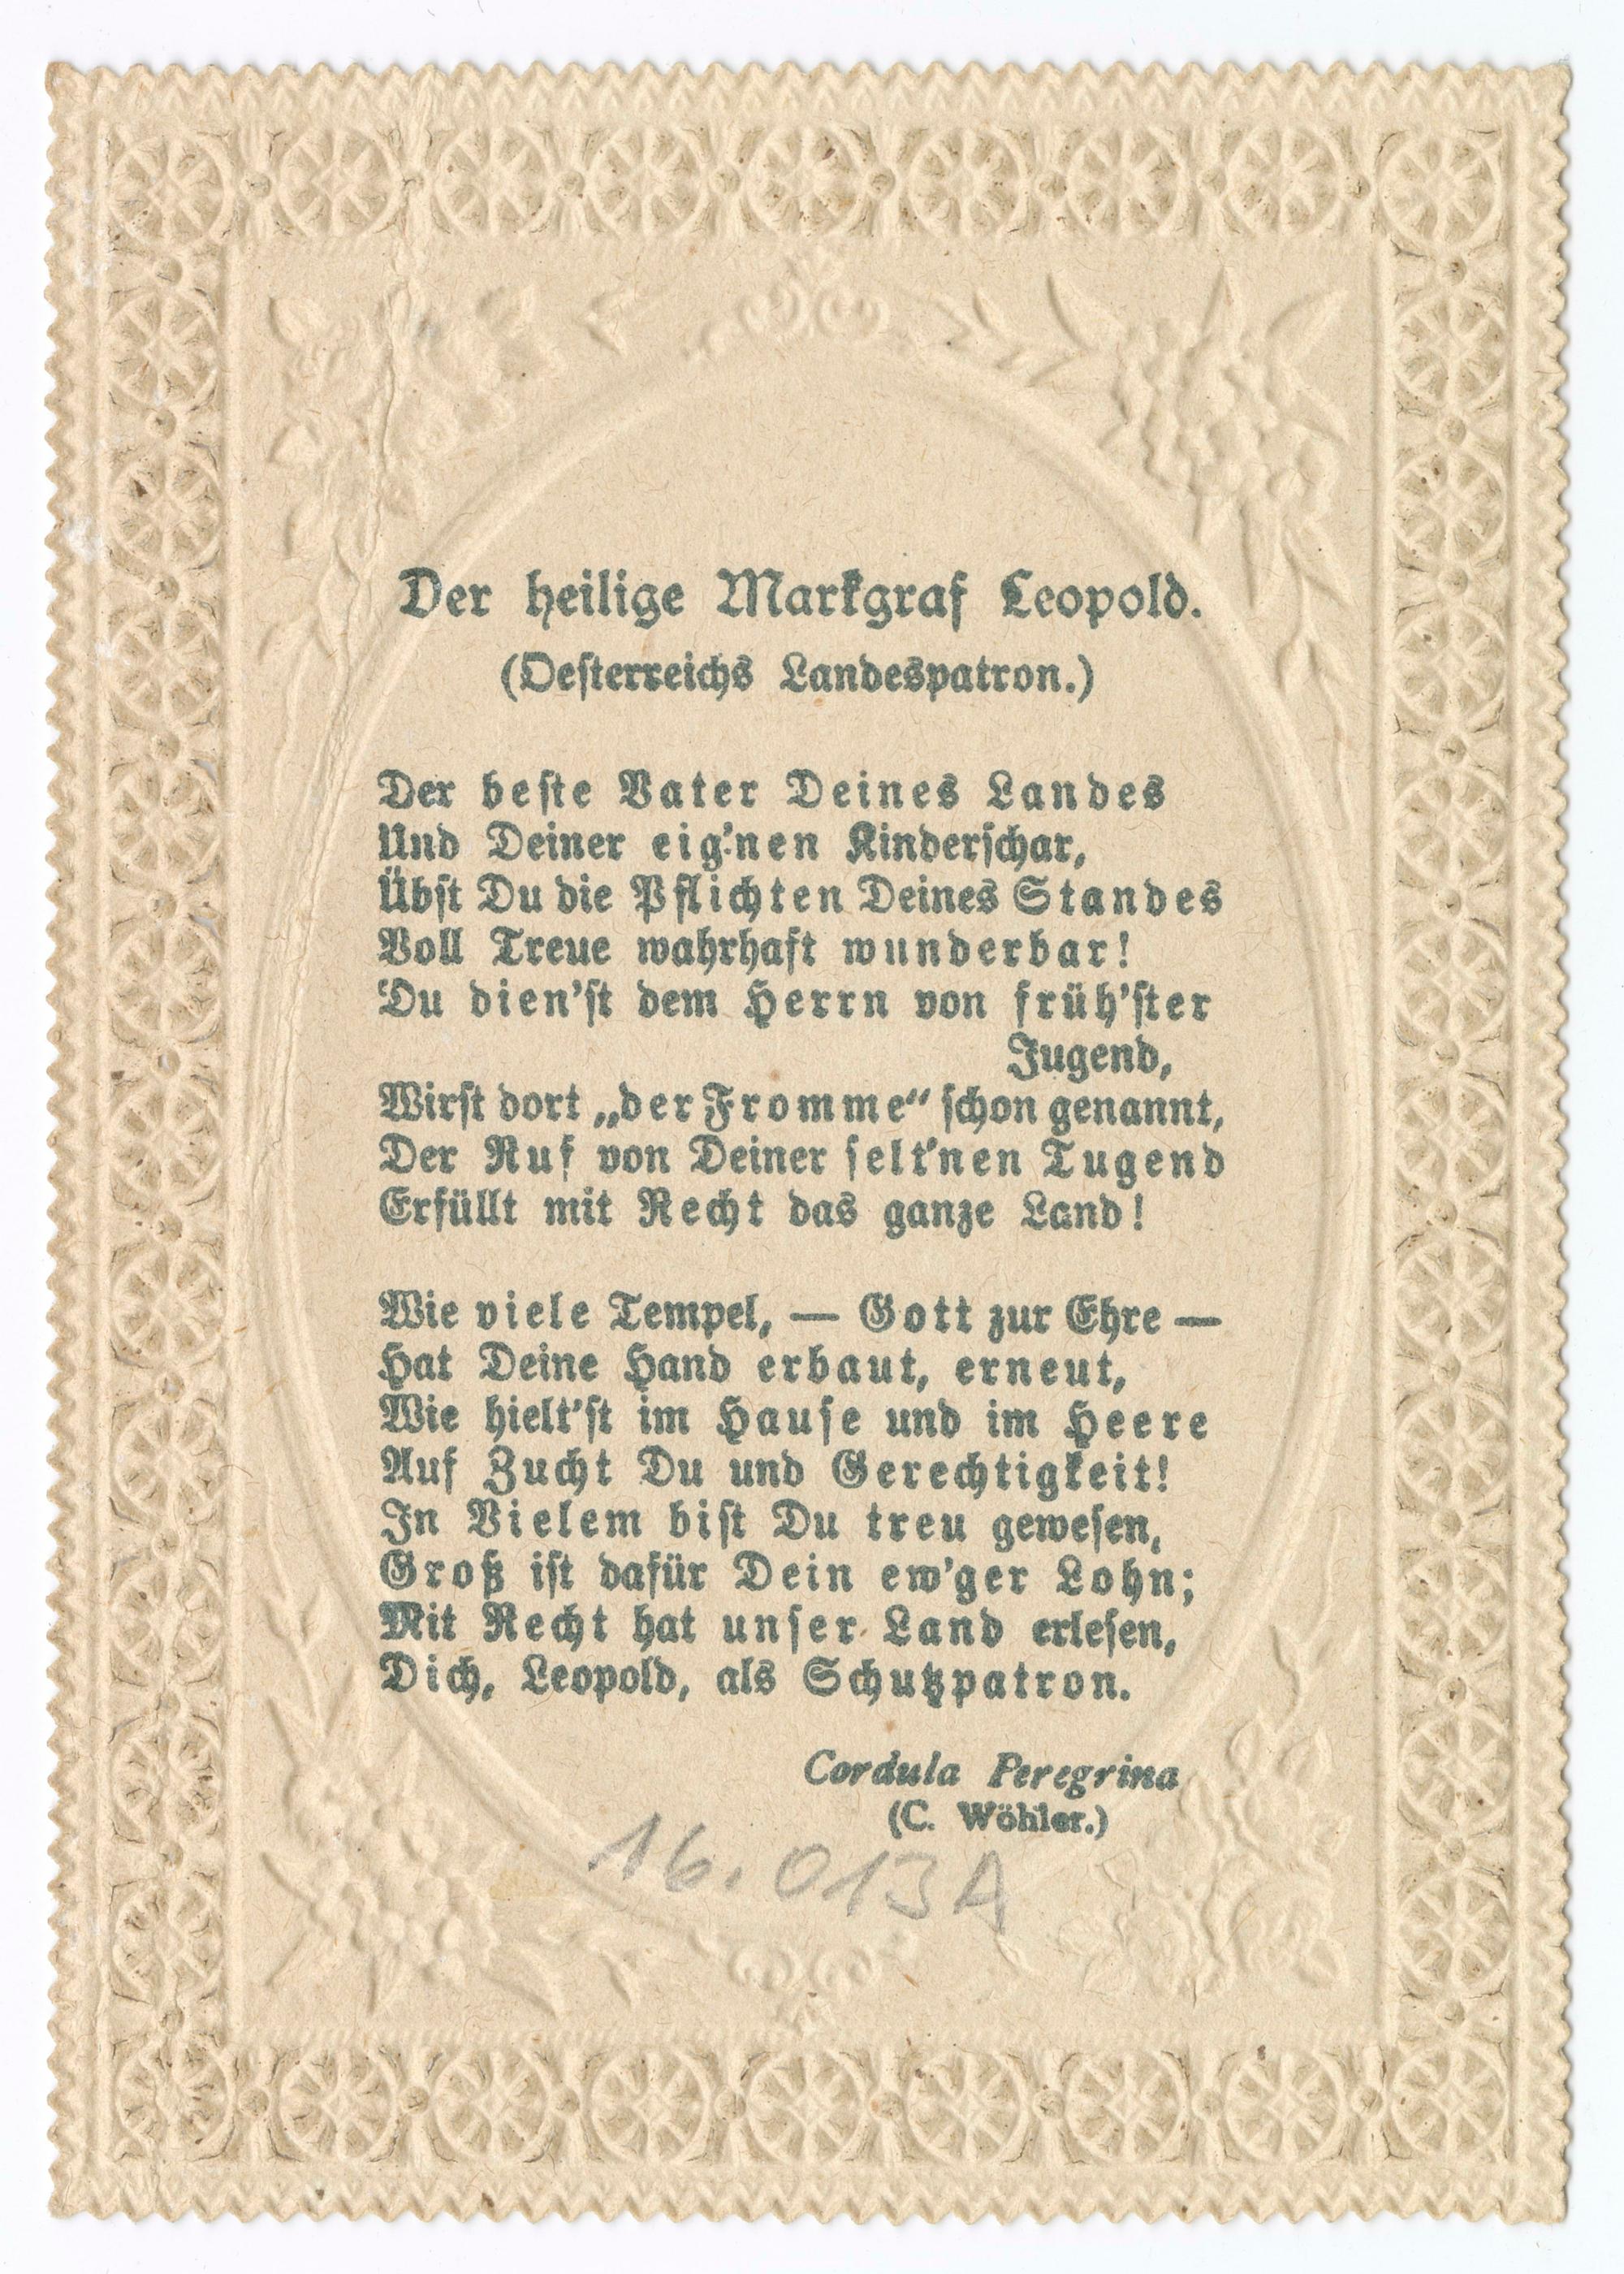 Der heilige Markgraf Leopold.
(Oesterreichs Landespatron.)
Der beste Vater Deines Landes
Und Deiner eig'nen Kinderschar,
Übst Du die Pflichten Deines Standes
Voll Treue wahrhaft wunderbar!
Du dien'st dem Herrn von früh'ster
Jugend,
Wirst dort „der Fromme“ schon genannt,
Der Ruf von Deiner selt'nen Tugend
Erfüllt mit Recht das ganze Land!
Wie viele Tempel, — Gott zur Ehre —
Hat Deine Hand erbaut, erneut,
Wie hielt'st im Hause und im Heere
Auf Zucht Du und Gerechtigkeit!
In Vielem bist Du treu gewesen,
Groß ist dafür Dein ew'ger Lohn;
Mit Recht hat unser Land erlesen,
Dich, Leopold, als Schutzpatron.
Cordula Peregrina
(C. Wöhler.)
16.013A